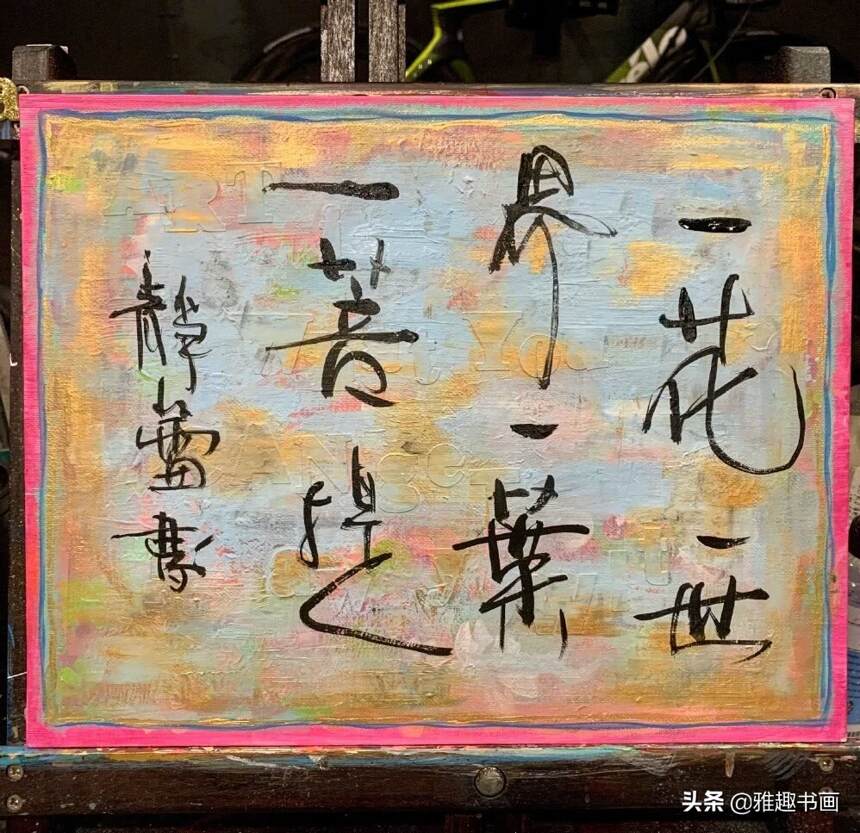 一花一世
界一葉
一菩提
靜蕾
ART
头条 @雅趣书画